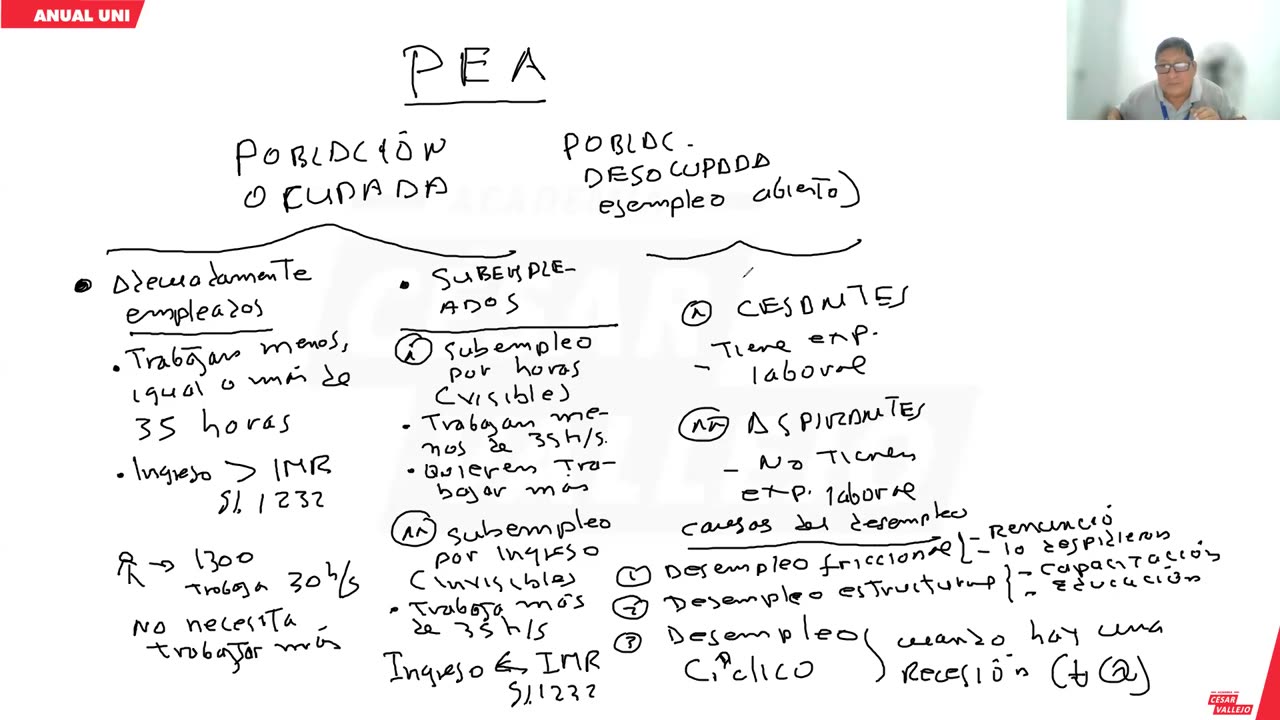 ANUAL UNI
PEA
POBLACIÓN
OCUPADA
POBLAC.
DESOCUPADA
esempleo abierto)
• Adecuadamente
empleados
• Trabajan menos,
igual o más de
35 horas
• Ingreso > IMR
S/. 1232
→ 1300
Trabaja 30h/s
No necesita
trabajar más
• SUBEMPLE-
ADOS
i Subempleo
por horas
(visible)
• Trabajan me-
nos de 35h/s.
• Quieren tra-
bajar más
ii Subempleo
por ingreso
(invisible)
• Trabaja más
de 35 h/s
Ingreso < IMR
S/. 1232
i CESANTES
- Tiene exp.
laboral
ii ASPIRANTES
- No tienen
exp. laboral
causas del desempleo
1 Desempleo friccional { - Renunció
- lo despidieron
2 Desempleo estructural } - capacitación
- educación
3 Desempleo
Cíclico } cuando hay una
Recesión
ACADEMIA
CESAR
VALLEJO
ACADEMIA
CESAR
VALLEJO